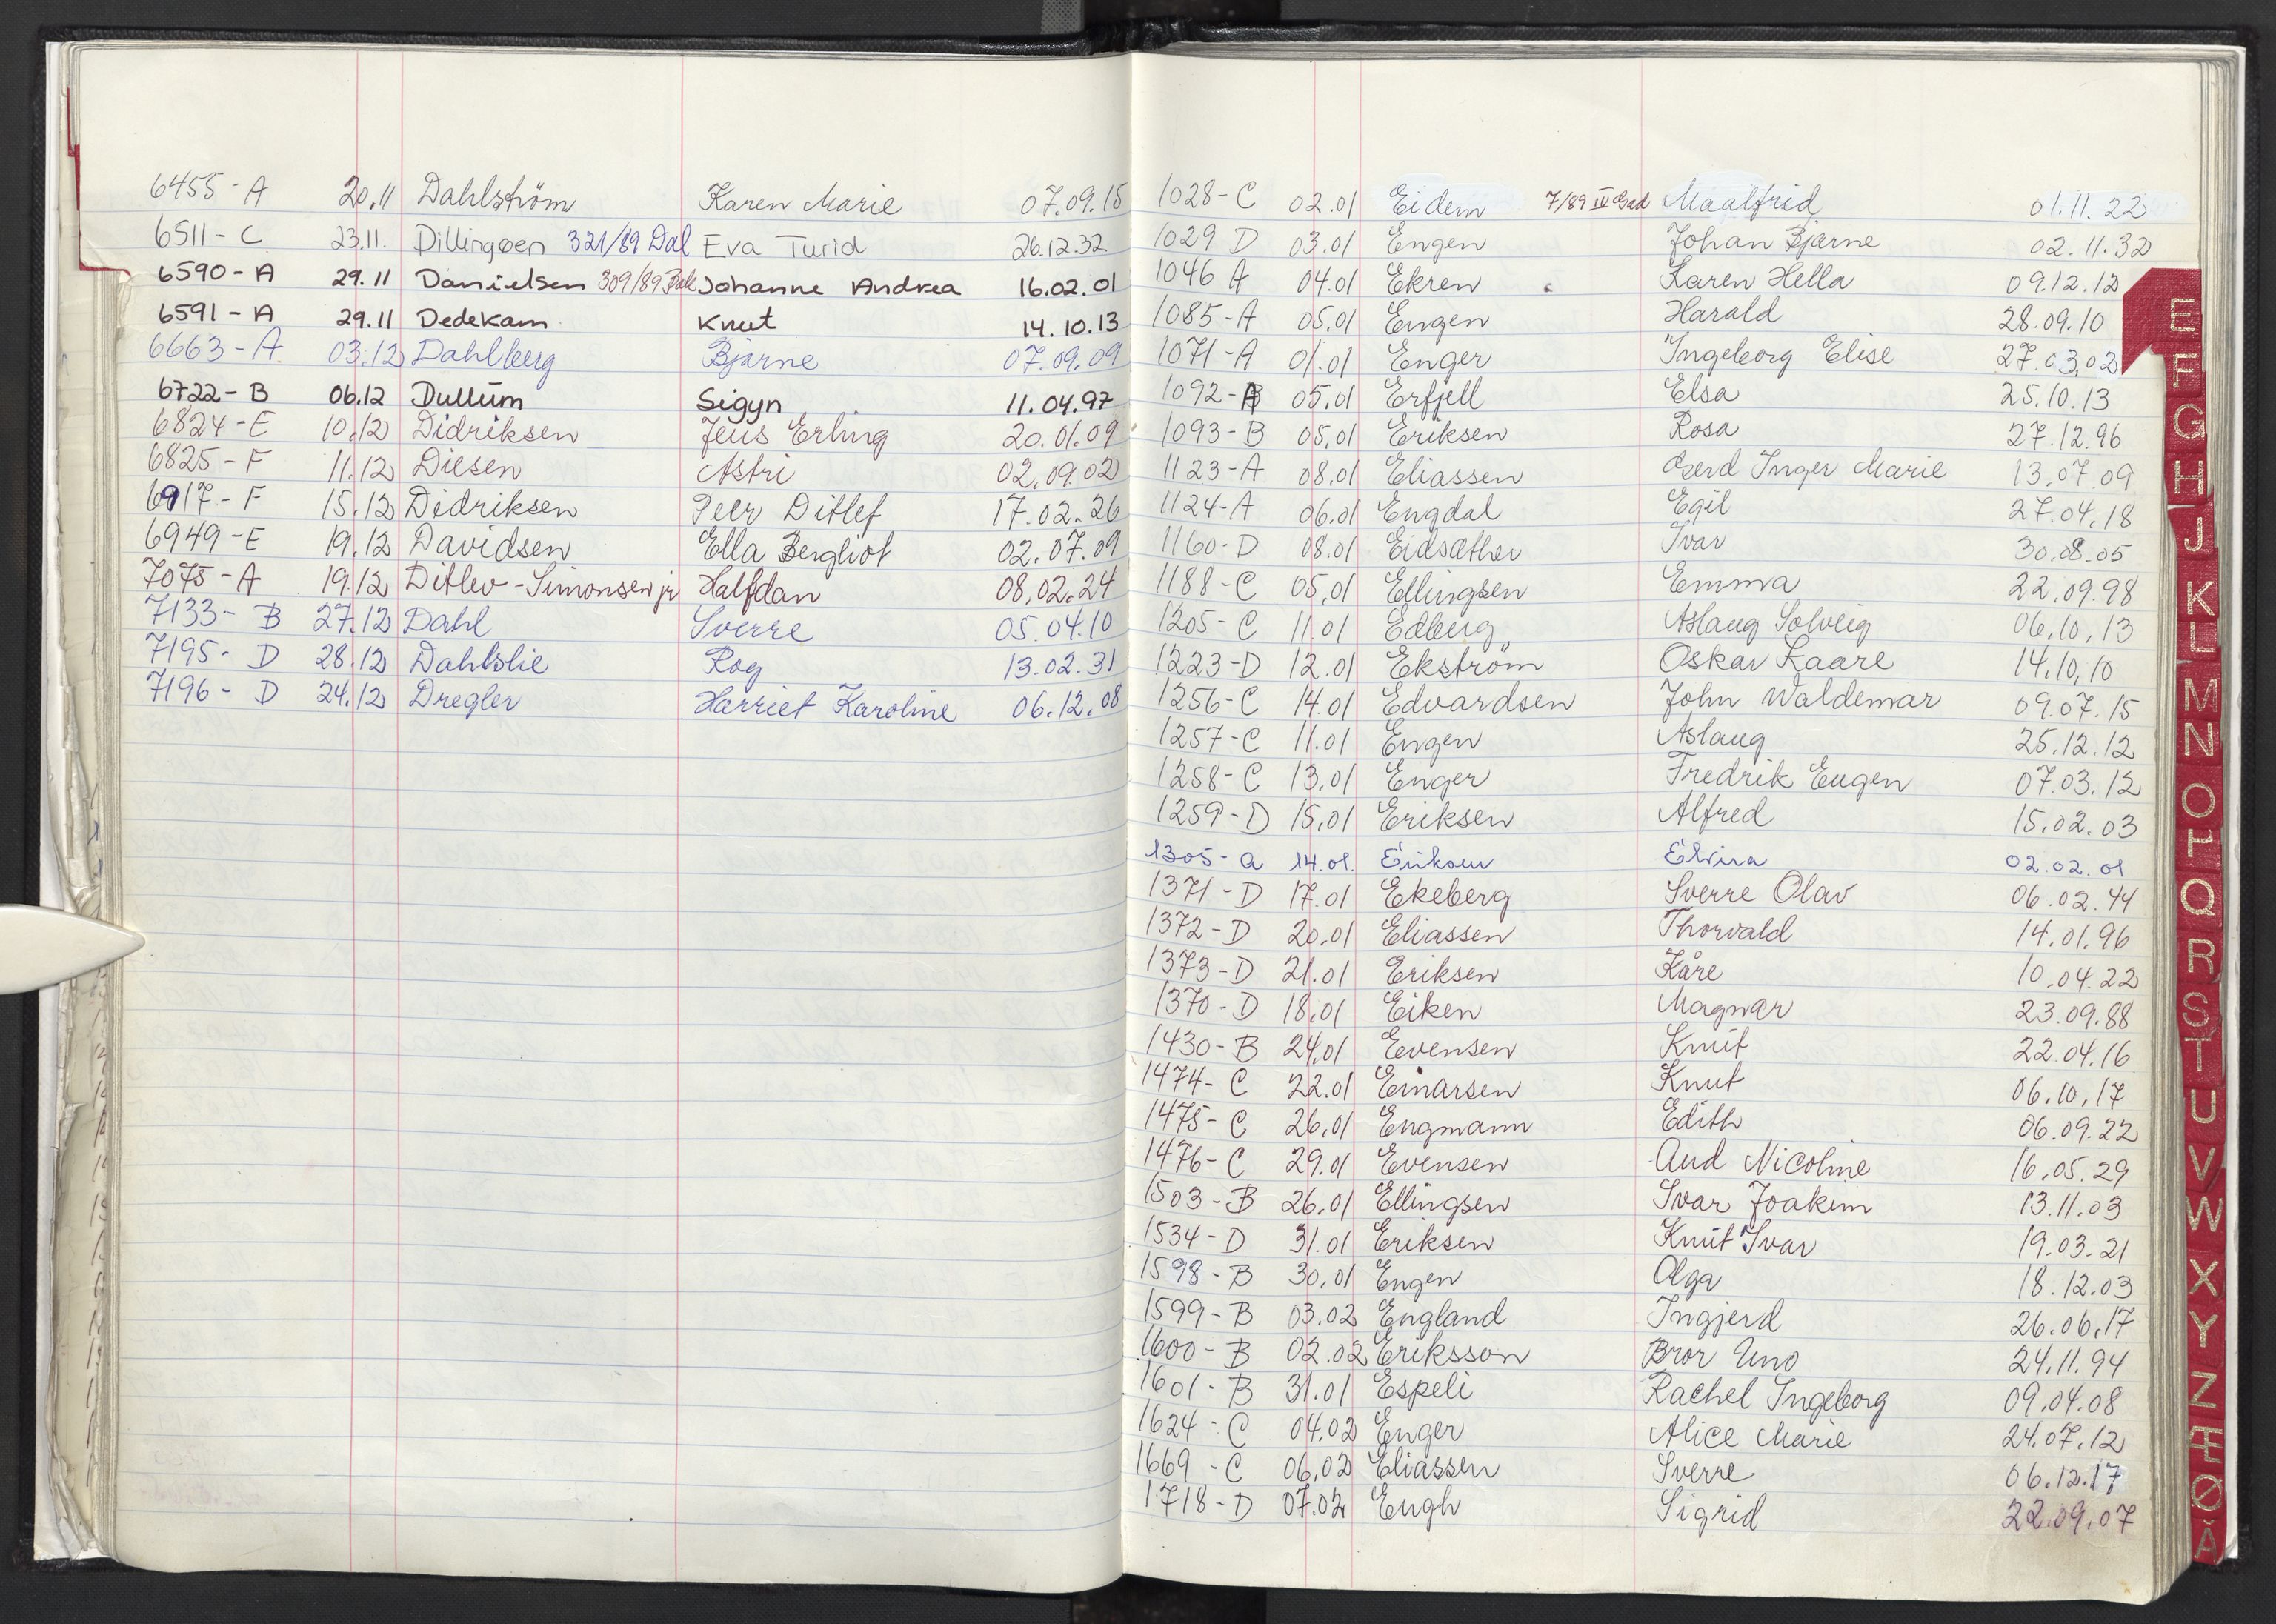 6455-A 20.11 Dahlström Karen Marie 07.09.15
6511-C 23.11. Dillingøen 321/89 Dal Eva Turid 26.12.32
6590-A 29.11 Danielsen 309/89 Johanne Andrea 16.02.01
6591-A 29.11 Dedekam Knut 14.10.13
6663-A 03.12 Dahlberg Bjarne 07.09.09
6722-B 06.12 Dullum Sigyn 11.04.97
6824-E 10.12 Didriksen Jens Erling 20.01.09
6825-F 11.12 Diesen Astri 02.09.02
6917-F 15.12 Didriksen Peer Ditlef 17.02.26
6949-E 19.12 Davidsen Ella Bergliot 02.07.09
7075-A 19.12 Ditlev-Simonsen jr Halfdan 08.02.24
7133-B 27.12 Dahl Sverre 05.04.10
7195-D 28.12 Dahlslie Roy 13.02.31
7196-D 24.12 Dregler Harriet Karoline 06.12.08
1028-C 02.01 Eidem 7/89 IV Maalfrid 01.11.22
1029 D 03.01 Engen Johan Bjarne 02.11.32
1046 A 04.01 Ekren Karen Hella 09.12.12
1085-A 05.01 Engen Harald 28.09.10
1071-A 01.01 Enger Ingeborg Elise 27.03.02
1092-A 05.01 Erfjell Elsa 25.10.13
1093-B 05.01 Eriksen Rosa 27.12.96
1123-A 08.01 Eliassen Gerd Inger Marie 13.07.09
1124-A 06.01 Engdal Egil 27.04.18
1160-D 08.01 Eidsæther Ivar 30.08.05
1188-C 05.01 Ellingsen Emma 22.09.98
1205-C 11.01 Edberg Aslaug Solveig 06.10.13
1223-D 12.01 Ekström Oskar Kaare 14.10.10
1256-C 14.01 Edvardsen John Waldemar 09.07.15
1257-C 11.01 Engen Aslaug 25.12.12
1258-C 13.01 Enger Fredrik Eugen 07.03.12
1259-D 15.01 Eriksen Alfred 15.02.03
1305-A 14.01. Eriksen Elvira 02.02.01
1371-D 17.01 Ekeberg Sverre Olav 06.02.44
1372-D 20.01 Eliassen Thorvald 14.01.96
1373-D 21.01 Eriksen Kåre 10.04.22
1370-D 18.01 Eiken Magnar 23.09.88
1430-B 24.01 Evensen Knut 22.04.16
1474-C 22.01 Einarsen Knut 06.10.17
1475-C 26.01 Engmann Edith 06.09.22
1476-C 29.01 Evensen Aud Nicoline 16.05.29
1503-B 26.01 Ellingsen Ivar Joakim 13.11.03
1534-D 31.01 Eriksen Knut Ivar 19.03.21
1598-B 30.01 Engen Olga 18.12.03
1599-B 03.02 England Ingjerd 26.06.17
1600-B 02.02 Eriksson Bror Uno 24.11.94
1601-B 31.01 Espeli Rachel Ingeborg 09.04.08
1624-C 04.02 Enger Alice Marie 24.07.12
1669-C 06.02 Eliassen Sverre 06.12.17
1718-D 07.02 Engh Sigrid 22.09.07
E
F
G
H
J
K
L
M
N
O
P
Q
R
S
T
U
V
W
X
Y
Z
Æ
Ø
Å